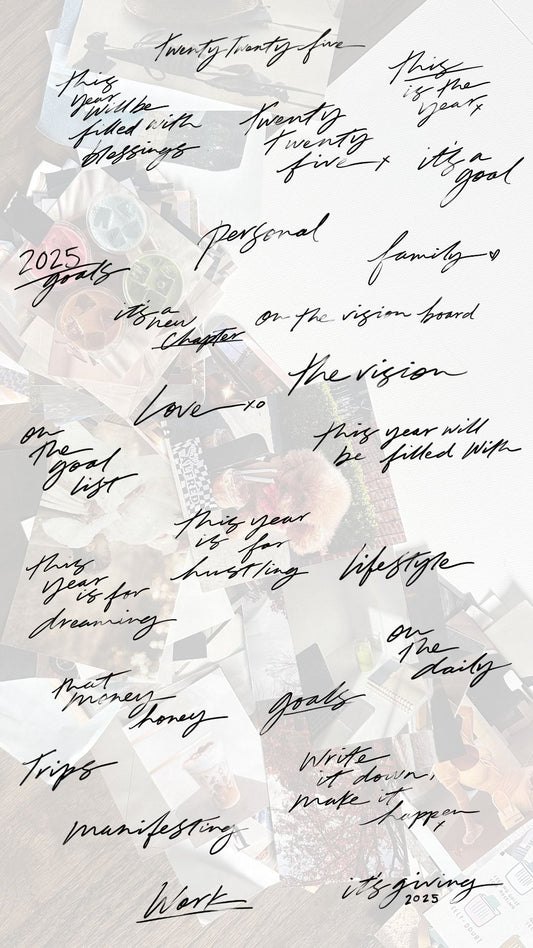 Twenty Twenty-five
this
year
will be
filled with
blessings
this
is the
year x
Twenty
Twenty
five x
it's a
goal
personal
family
2025
goals
it's a
new
Chapter
on the vision board
the vision
Love xo
this year will
be filled with
on
the
goal
list
this year
is for
hustling
this
year
is for
dreaming
lifestyle
on
the
daily
that
money
honey
goals
Trips
Write
it down,
make it
happen
manifesting
Work
it's giving
2025